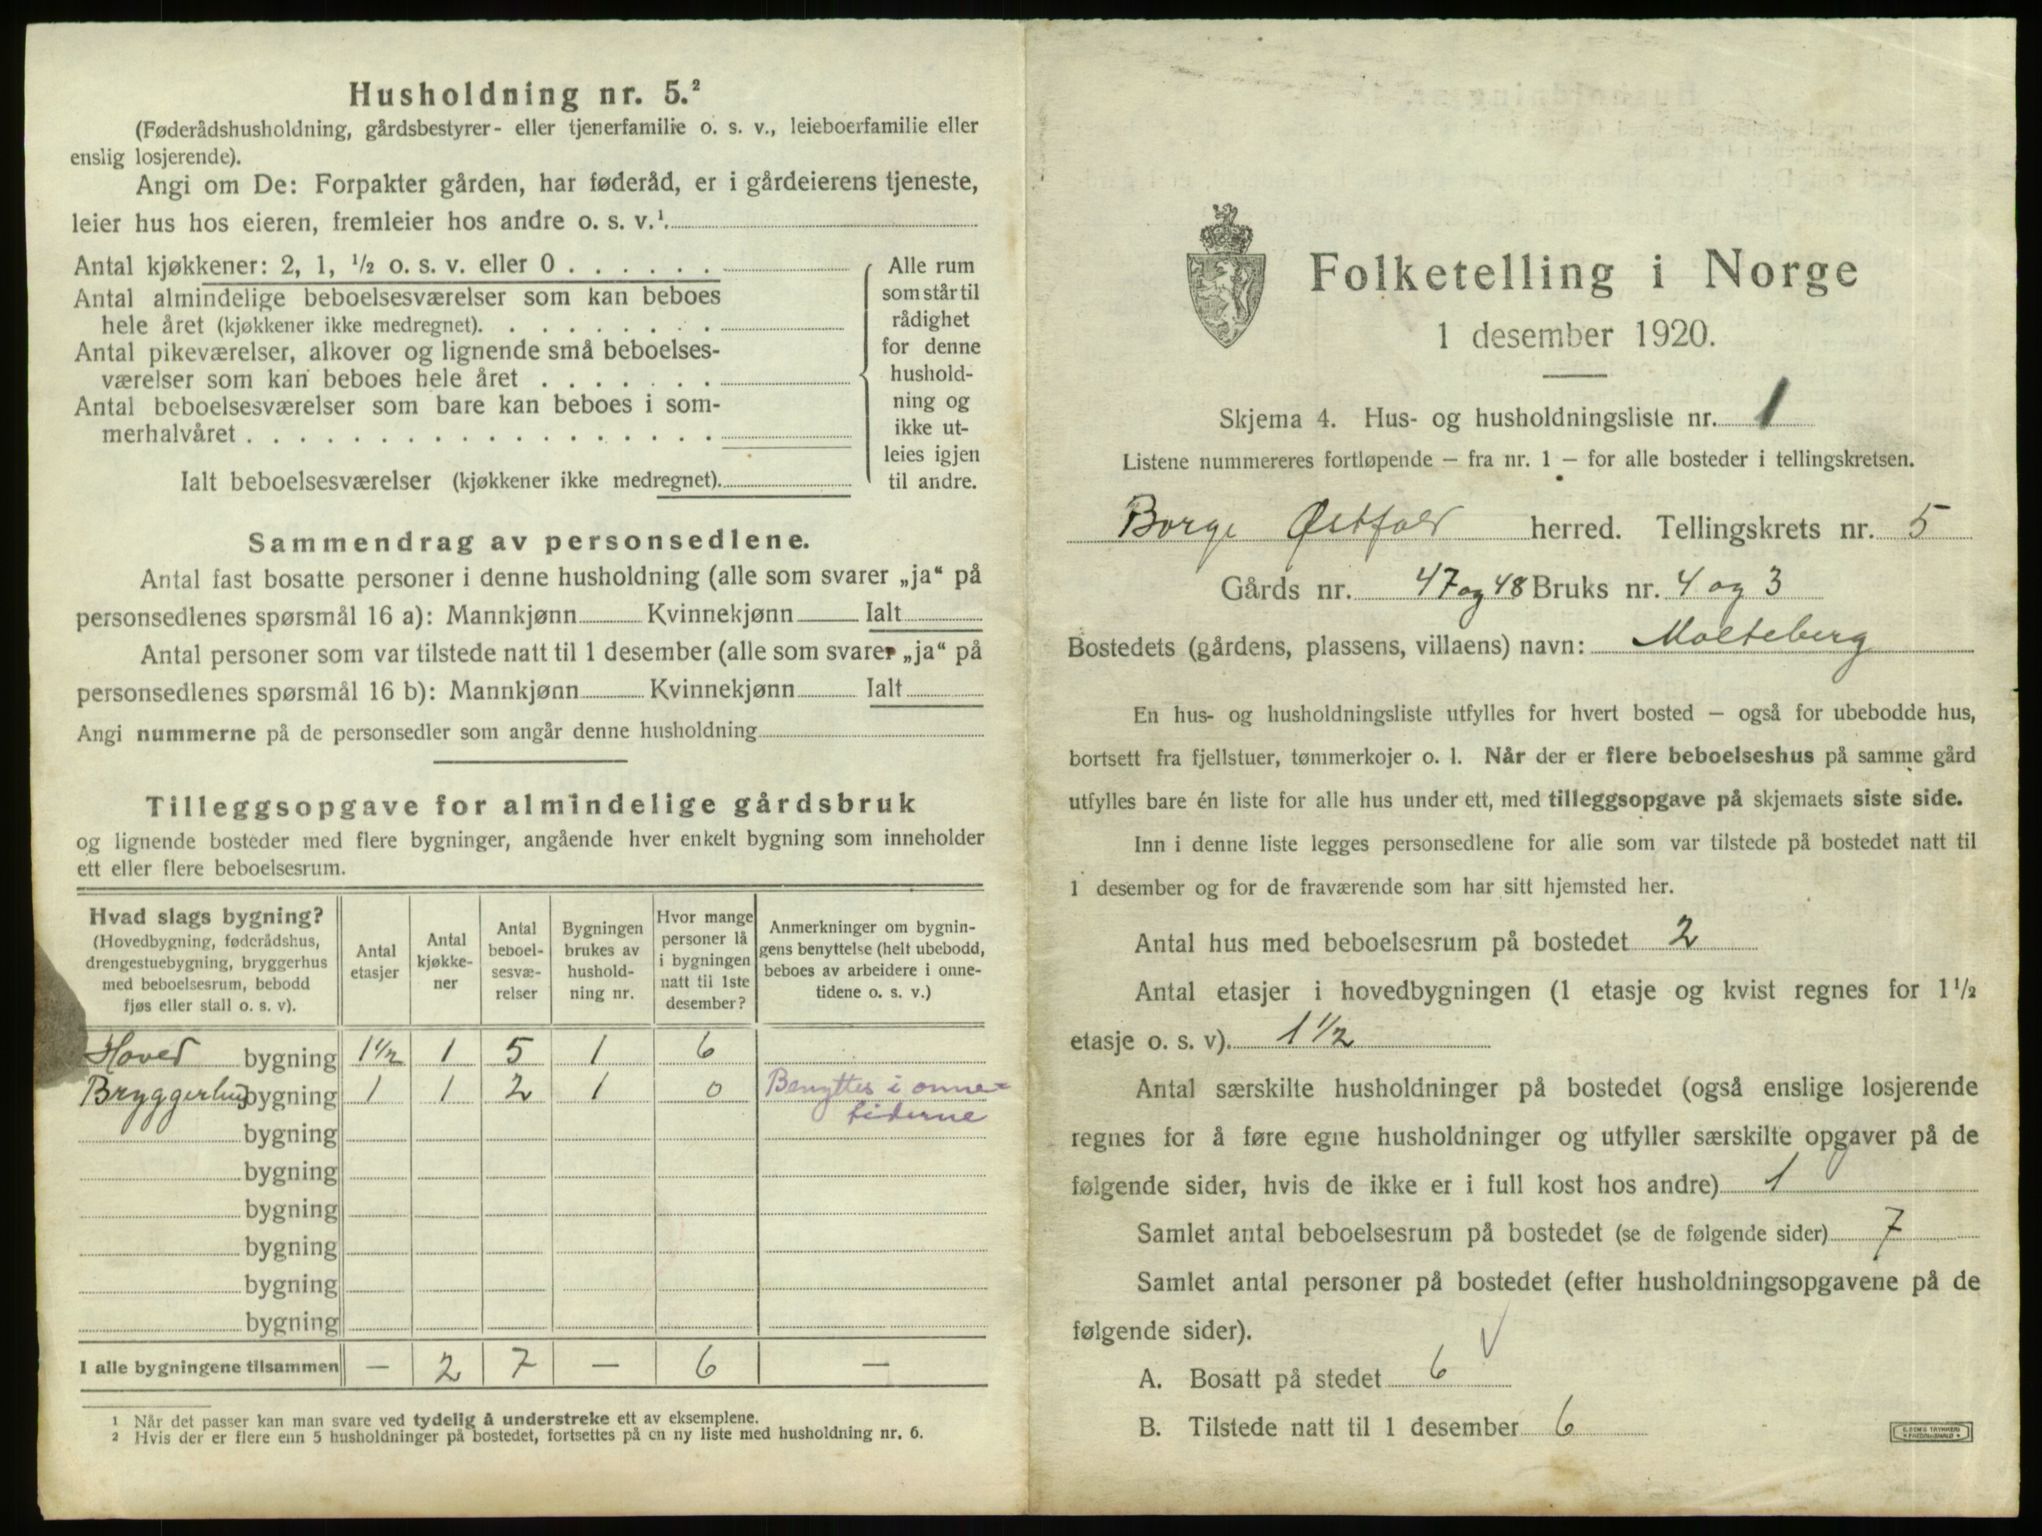 Husholdning nr. 5.²
(Føderådshusholdning, gårdsbestyrer- eller tjenerfamilie o. s. v., leieboerfamilie eller
enslig losjerende).
Angi om De: Forpakter gården, har føderåd, er i gårdeierens tjeneste,
leier hus hos eieren, fremleier hos andre o. s. v.¹.
Antal kjøkkener: 2, 1, ½ o. s. v. eller 0 . . . . . .
Antal almindelige beboelsesværelser som kan beboes
hele året (kjøkkener ikke medregnet). . . . . . . . .
Antal pikeværelser, alkover og lignende små beboelses-
værelser som kan beboes hele året . . . . . . .
Antal beboelsesværelser som bare kan beboes i som-
merhalvåret . . . . . . . . . . . . . . . . . .
Ialt beboelsesværelser (kjøkkener ikke medregnet).
Alle rum
som står til
rådighet
for denne
hushold-
ning og
ikke ut-
leies igjen
til andre.
Sammendrag av personsedlene.
Antal fast bosatte personer i denne husholdning (alle som svarer „ja“ på
personsedlenes spørsmål 16 a): Mannkjønn Kvinnekjønn Ialt
Antal personer som var tilstede natt til 1 desember (alle som svarer „ja“ på
personsedlenes spørsmål 16 b): Mannkjønn Kvinnekjønn Ialt
Angi nummerne på de personsedler som angår denne husholdning
Tilleggsopgave for almindelige gårdsbruk
og lignende bosteder med flere bygninger, angående hver enkelt bygning som inneholder
ett eller flere beboelsesrum.
Hvad slags bygning?
(Hovedbygning, føderådshus,
drengestuebygning, bryggerhus
med beboelsesrum, bebodd
fjøs eller stall o. s. v).
Antal
etasjer
Antal
kjøkke-
ner
Antal
beboel-
sesvæ-
relser
Bygningen
brukes av
hushold-
ning nr.
Hvor mange
personer lå
i bygningen
natt til 1ste
desember?
Anmerkninger om bygnin-
gens benyttelse (helt ubebodd,
beboes av arbeidere i onne-
tidene o. s. v.)
Hoved bygning 1½ 1 5 1 6
Bryggerhus bygning 1 1 2 1 0 Benyttes i onne-
tiderne
bygning
bygning
bygning
bygning
bygning
bygning
I alle bygningene tilsammen — 2 7 — 6 —
¹ Når det passer kan man svare ved tydelig å understreke ett av eksemplene.
² Hvis der er flere enn 5 husholdninger på bostedet, fortsettes på en ny liste med husholdning nr. 6.
Folketelling i Norge
1 desember 1920.
Skjema 4. Hus- og husholdningsliste nr. 1
Listene nummereres fortløpende — fra nr. 1 — for alle bosteder i tellingskretsen.
Borge Østfold herred. Tellingskrets nr. 5
Gårds nr. 47 og 48 Bruks nr. 4 og 3
Bostedets (gårdens, plassens, villaens) navn: Molteberg
En hus- og husholdningsliste utfylles for hvert bosted — også for ubebodde hus,
bortsett fra fjellstuer, tømmerkojer o. l. Når der er flere beboelseshus på samme gård
utfylles bare én liste for alle hus under ett, med tilleggsopgave på skjemaets siste side.
Inn i denne liste legges personsedlene for alle som var tilstede på bostedet natt til
1 desember og for de fraværende som har sitt hjemsted her.
Antal hus med beboelsesrum på bostedet 2
Antal etasjer i hovedbygningen (1 etasje og kvist regnes for 1½
etasje o. s. v). 1½
Antal særskilte husholdninger på bostedet (også enslige losjerende
regnes for å føre egne husholdninger og utfyller særskilte opgaver på de
følgende sider, hvis de ikke er i full kost hos andre) 1
Samlet antal beboelsesrum på bostedet (se de følgende sider) 7
Samlet antal personer på bostedet (efter husholdningsopgavene på de
følgende sider).
A. Bosatt på stedet 6
B. Tilstede natt til 1 desember 6